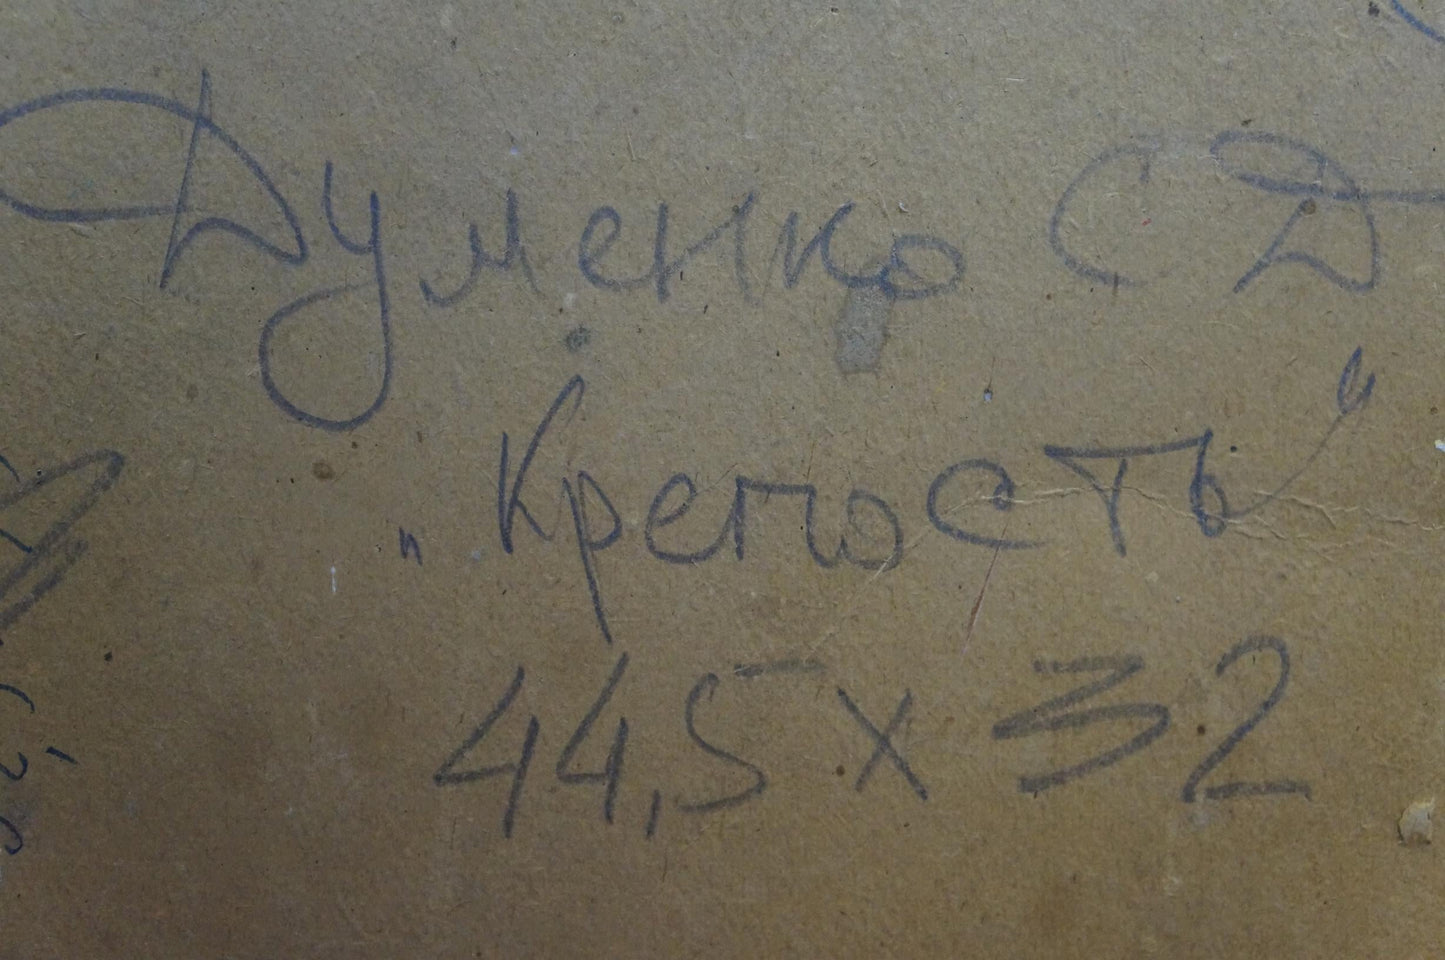 Думенко С Д
„Крепость"
44,5 х 32